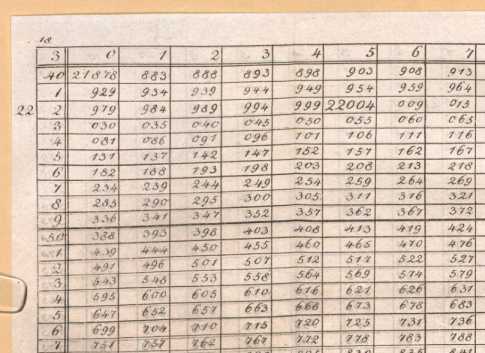 18
3 0 1 2 3 4 5 6 7
40 21878 883 888 893 898 903 908 913
1 929 934 939 944 949 954 959 964
22 2 979 984 989 994 999 22004 009 015
3 030 035 040 045 050 055 060 065
4 081 086 091 096 101 106 111 116
5 131 137 142 147 152 157 162 167
6 182 188 193 198 203 208 213 218
7 234 239 244 249 254 259 264 269
8 285 290 295 300 305 311 316 321
9 336 341 347 352 357 362 367 372
50 388 393 398 403 408 413 419 424
1 439 444 450 455 460 465 470 476
2 491 496 501 507 512 517 522 527
3 543 548 553 558 564 569 574 579
4 595 600 605 610 616 621 626 631
5 647 652 657 663 668 673 678 683
6 699 704 710 715 720 725 731 736
7 751 757 762 767 772 778 783 788